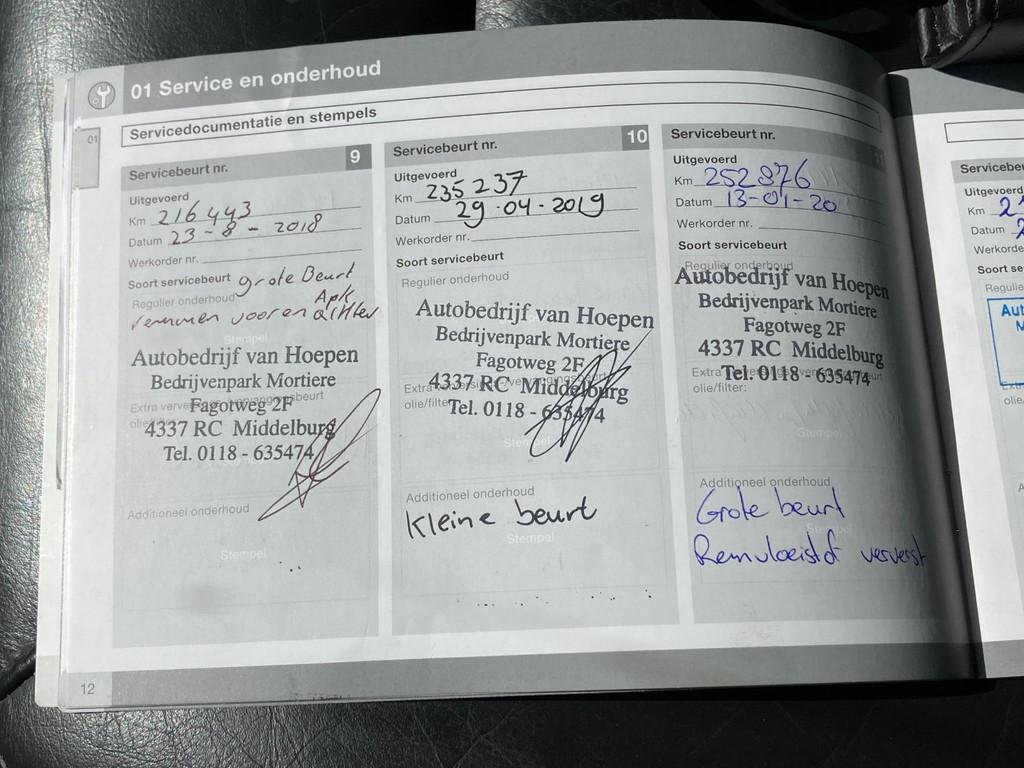 01 Service en onderhoud
01
Servicedocumentatie en stempels
Servicebeurt nr. 9
Uitgevoerd
Km 216443
Datum 23-8-2018
Werkorder nr.
Soort servicebeurt grote Beurt
Regulier onderhoud Apk
remmen voor en achter
Stempel
Autobedrijf van Hoepen
Bedrijvenpark Mortiere
Fagotweg 2F
4337 RC Middelburg
Tel. 0118 - 635474
Additioneel onderhoud
Stempel
12
Servicebeurt nr. 10
Uitgevoerd
Km 235237
Datum 29-04-2019
Werkorder nr.
Soort servicebeurt
Regulier onderhoud
Autobedrijf van Hoepen
Bedrijvenpark Mortiere
Fagotweg 2F
4337 RC Middelburg
olie/filter
Tel. 0118 - 635474
Stempel
Additioneel onderhoud
Kleine beurt
Stempel
Servicebeurt nr.
Uitgevoerd
Km 252876
Datum 13-01-20
Werkorder nr.
Soort servicebeurt
Regulier onderhoud
Autobedrijf van Hoepen
Bedrijvenpark Mortiere
Fagotweg 2F
4337 RC Middelburg
Tel. 0118 - 635474
olie/filter:
Stempel
Additioneel onderhoud
Grote beurt
Stempel
Remvloeistof ververst
Uitgevoerd
Km
Datum